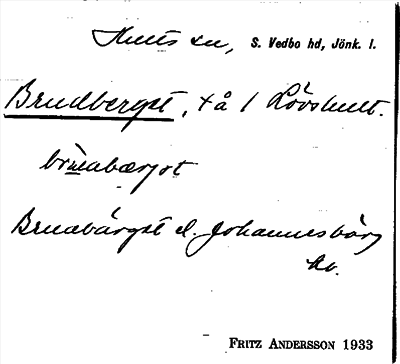 Hults sn, S. Vedbo hd, Jönk. l.
Brudberget, + å / Lövshult.
brudabærjət
Brudabärget el. Johannesbärg
hv.
FRITZ ANDERSSON 1933